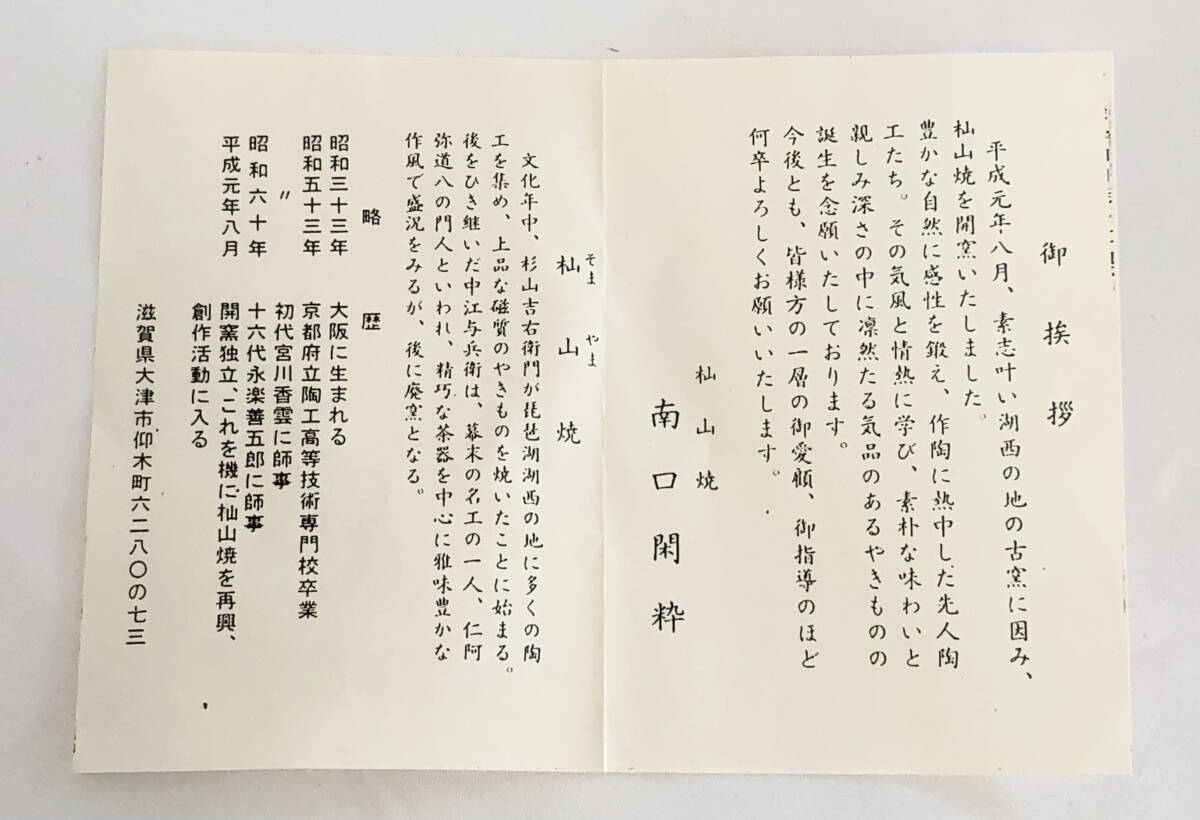 御挨拶
平成元年八月、素志叶い湖西の地の古窯に因み、
杣山焼を開窯いたしました。
豊かな自然に感性を鍛え、作陶に熱中した先人陶
工たち。その気風と情熱に学び、素朴な味わいと
親しみ深さの中に凛然たる気品のあるやきものの
誕生を念願いたしております。
今後とも、皆様方の一層の御愛顧、御指導のほど
何卒よろしくお願いいたします。
杣山焼
南口閑粋
杣山焼
そま やま
文化年中、杉山吉右衛門が琵琶湖湖西の地に多くの陶
工を集め、上品な磁質のやきものを焼いたことに始まる。
後をひき継いだ中江与兵衛は、幕末の名工の一人、仁阿
弥道八の門人といわれ、精巧な茶器を中心に雅味豊かな
作風で盛況をみるが、後に廃窯となる。
略歴
昭和三十三年 大阪に生まれる
昭和五十三年 京都府立陶工高等技術専門校卒業
〃 初代宮川香雲に師事
昭和六十年 十六代永楽善五郎に師事
平成元年八月 開窯独立、これを機に杣山焼を再興、
創作活動に入る
滋賀県大津市仰木町六二八〇の七三